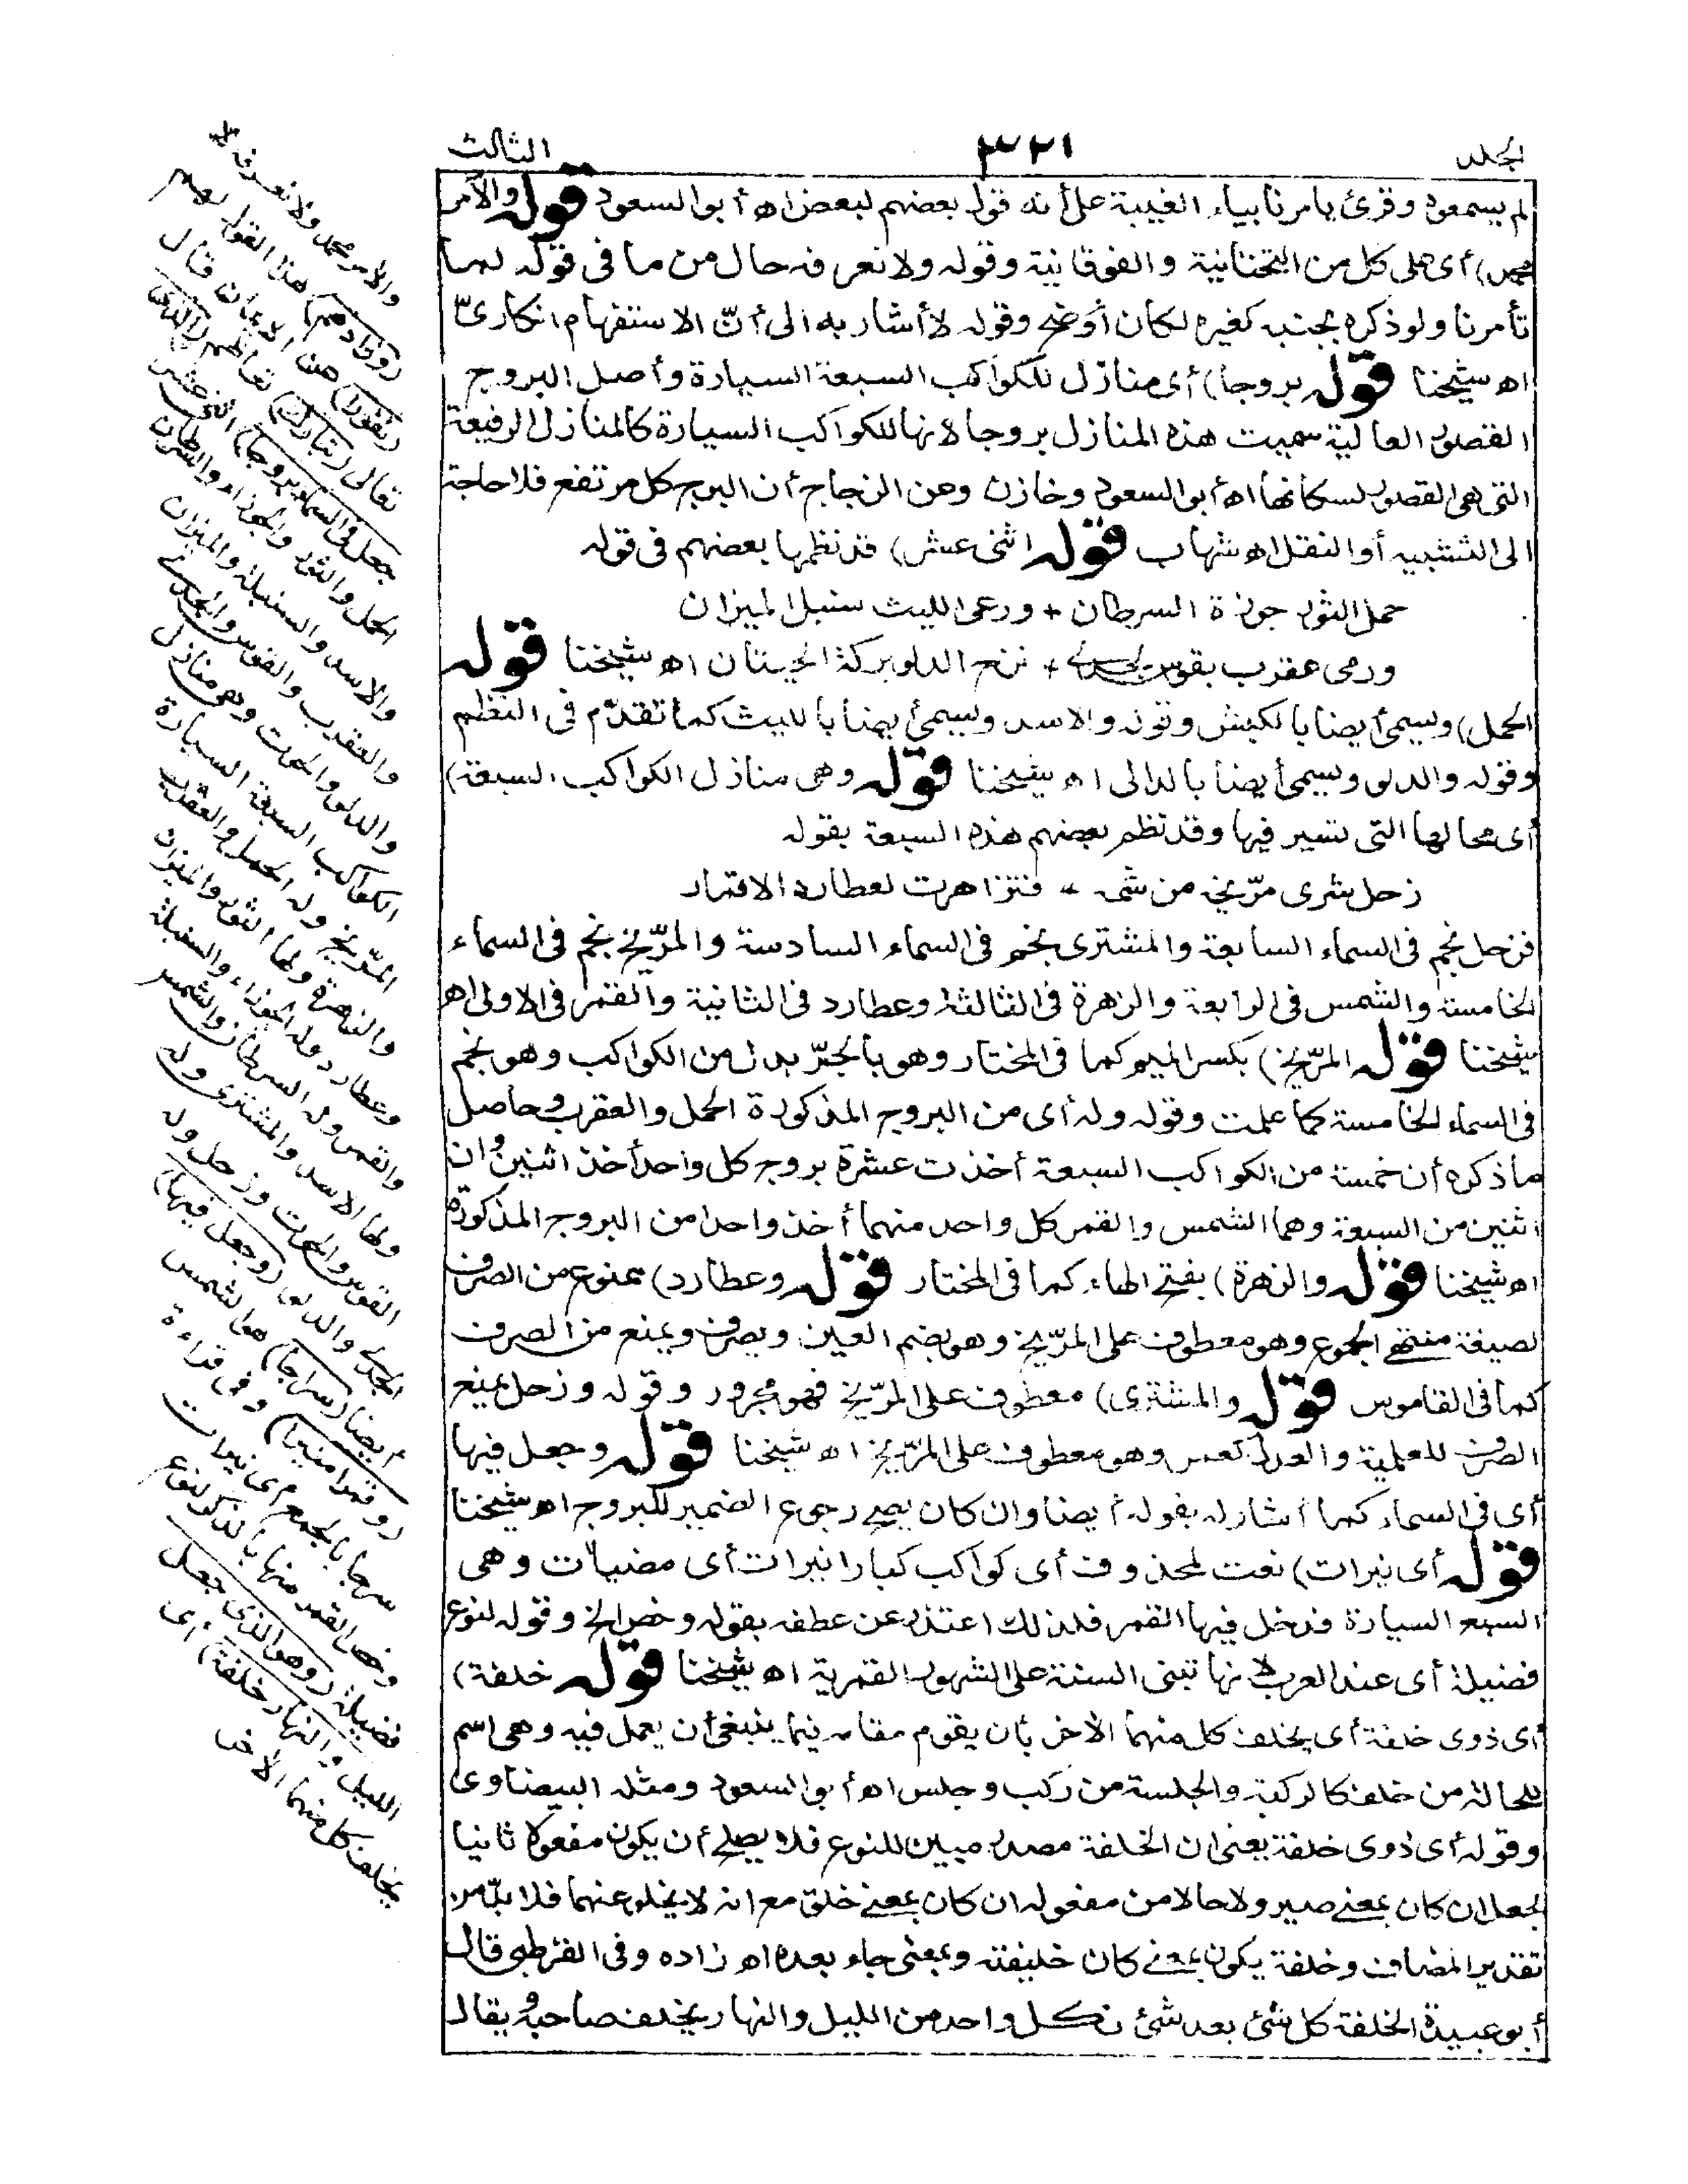 الجلد ٣٢١ الثالث
لم يسمعوه وقرئ يامرنا بياء الغيبة على أنه قول بعضهم لبعض اه أبو السعود قوله والآمر
محمد) أى على كل من التحتانية والفوقانية وقوله ولا نعرفه حال من ما فى قوله لما
تأمرنا ولو ذكره بجنبه كغيره لكان أوضح وقوله لا أشار به الى أنّ الاستفهام انكارىّ
اه شيخنا قوله بروجا) أى منازل للكواكب السبعة السيارة وأصل البروج
القصور العالية سميت هذه المنازل بروجا لانها للكواكب السيارة كالمنازل الرفيعة
التى هى القصور لسكانها اه أبو السعود وخازن وعن الزجاج أن البرج كل مرتفع فلا حاجة
الى التشبيه أو النقل اه شهاب قوله اثنى عشر) قد نظمها بعضهم فى قوله
حمل الثور جوزة السرطان + ورعى الليث سنبل الميزان
ورمى عقرب بقوس لجدى + نزح الدلو بركة الحيتان اه شيخنا قوله
الحمل) ويسمى أيضا بالكبش وقوله والاسد ويسمى أيضا بالليث كما تقدّم فى النظم
وقوله والدلو ويسمى أيضا بالدالى اه شيخنا قوله وهى منازل الكواكب السبعة)
أى محالها التى تسير فيها وقد نظم بعضهم هذه السبعة بقوله
زحل شرى مرّيخه من شمسه + فتزاهرت لعطارد الاقمار
فزحل نجم فى السماء السابعة والمشترى نجم فى السماء السادسة والمرّيخ نجم فى السماء
الخامسة والشمس فى الرابعة والزهرة فى الثالثة وعطارد فى الثانية والقمر فى الاولى اه
شيخنا قوله المرّيخ) بكسر الميم كما فى المختار وهو بالجرّ بدل من الكواكب وهو نجم
فى السماء الخامسة كما علمت وقوله وله أى من البروج المذكورة الحمل والعقرب وحاصل
ما ذكره أن خمسة من الكواكب السبعة أخذت عشرة بروج كل واحد أخذ اثنين وان
اثنين من السبعة وهما الشمس والقمر كل واحد منهما أخذ واحدا من البروج المذكورة
اه شيخنا قوله والزهرة) بفتح الهاء كما فى المختار قوله وعطارد) ممنوع من الصرف
لصيغة منتهى الجموع وهو معطوف على المرّيخ وهو بضم العين ويصرف ويمنع من الصرف
كما فى القاموس قوله والمشترى) معطوف على المرّيخ فهو مجرور وقوله وزحل يمنع
الصرف للعلمية والعدل كعمر وهو معطوف على المرّيخ اه شيخنا قوله وجعل فيها
أى فى السماء كما أشار له بقوله أيضا وان كان يصح رجوع الضمير للبروج اه شيخنا
قوله أى نيرات) نعت لمحذوف أى كواكب كبارا نيرات أى مضيات وهى
السبع السيارة فدخل فيها القمر فلذلك اعتذر عن عطفه بقوله وخص الخ وقوله لنوع
فضيلة أى عند العرب لانها تبنى السنة على الشهور القمرية اه شيخنا قوله خلفة)
أى ذوى خلفة أى يخلف كل منهما الآخر بأن يقوم مقامه فيما ينبغى أن يعمل فيه وهى اسم
للحالة من خلف كالركبة والجلسة من ركب وجلس اه أبو السعود ومثله البيضاوى
وقوله أى ذوى خلفة يعنى ان الخلفة مصدر مبين للنوع فلا يصلح أن يكون مفعولا ثانيا
لجعل ان كان بمعنى صير ولا حالا من مفعوله ان كان بمعنى خلق مع انه لا يخلو عنهما فلا بدّ من
تقدير المضاف وخلفة يكون بمعنى كان خليفته وبمعنى جاء بعده اه زاده وفى القرطبى قال
أبو عبيدة الخلفة كل شئ بعد شئ فكل واحد من الليل والنهار يخلف صاحبه ويقال
والآمر محمد ولا نعرفه لا
(وزادهم) هذا القول لهم
(نفورا) عن الايمان قال
تعالى (تبارك) تعاظم (الذى
جعل فى السماء بروجا) اثنى عشر
الحمل والثور والجوزاء والسرطان
والاسد والسنبلة والميزان
والعقرب والقوس والجدى
والدلو والحوت وهى منازل
الكواكب السبعة السيارة
المرّيخ وله الحمل والعقرب
والزهرة ولها الثور والميزان
وعطارد وله الجوزاء والسنبلة
والقمر وله السرطان والشمس
ولها الاسد والمشترى وله
القوس والحوت وزحل وله
الجدى والدلو (وجعل فيها)
أيضا (سراجا) هو الشمس
(وقمرا منيرا) وفى قراءة
سرجا بالجمع أى نيرات
وخص القمر منها بالذكر لنوع
فضيلة (وهو الذى جعل
الليل والنهار خلفة) أى
يخلف كل منهما الآخر